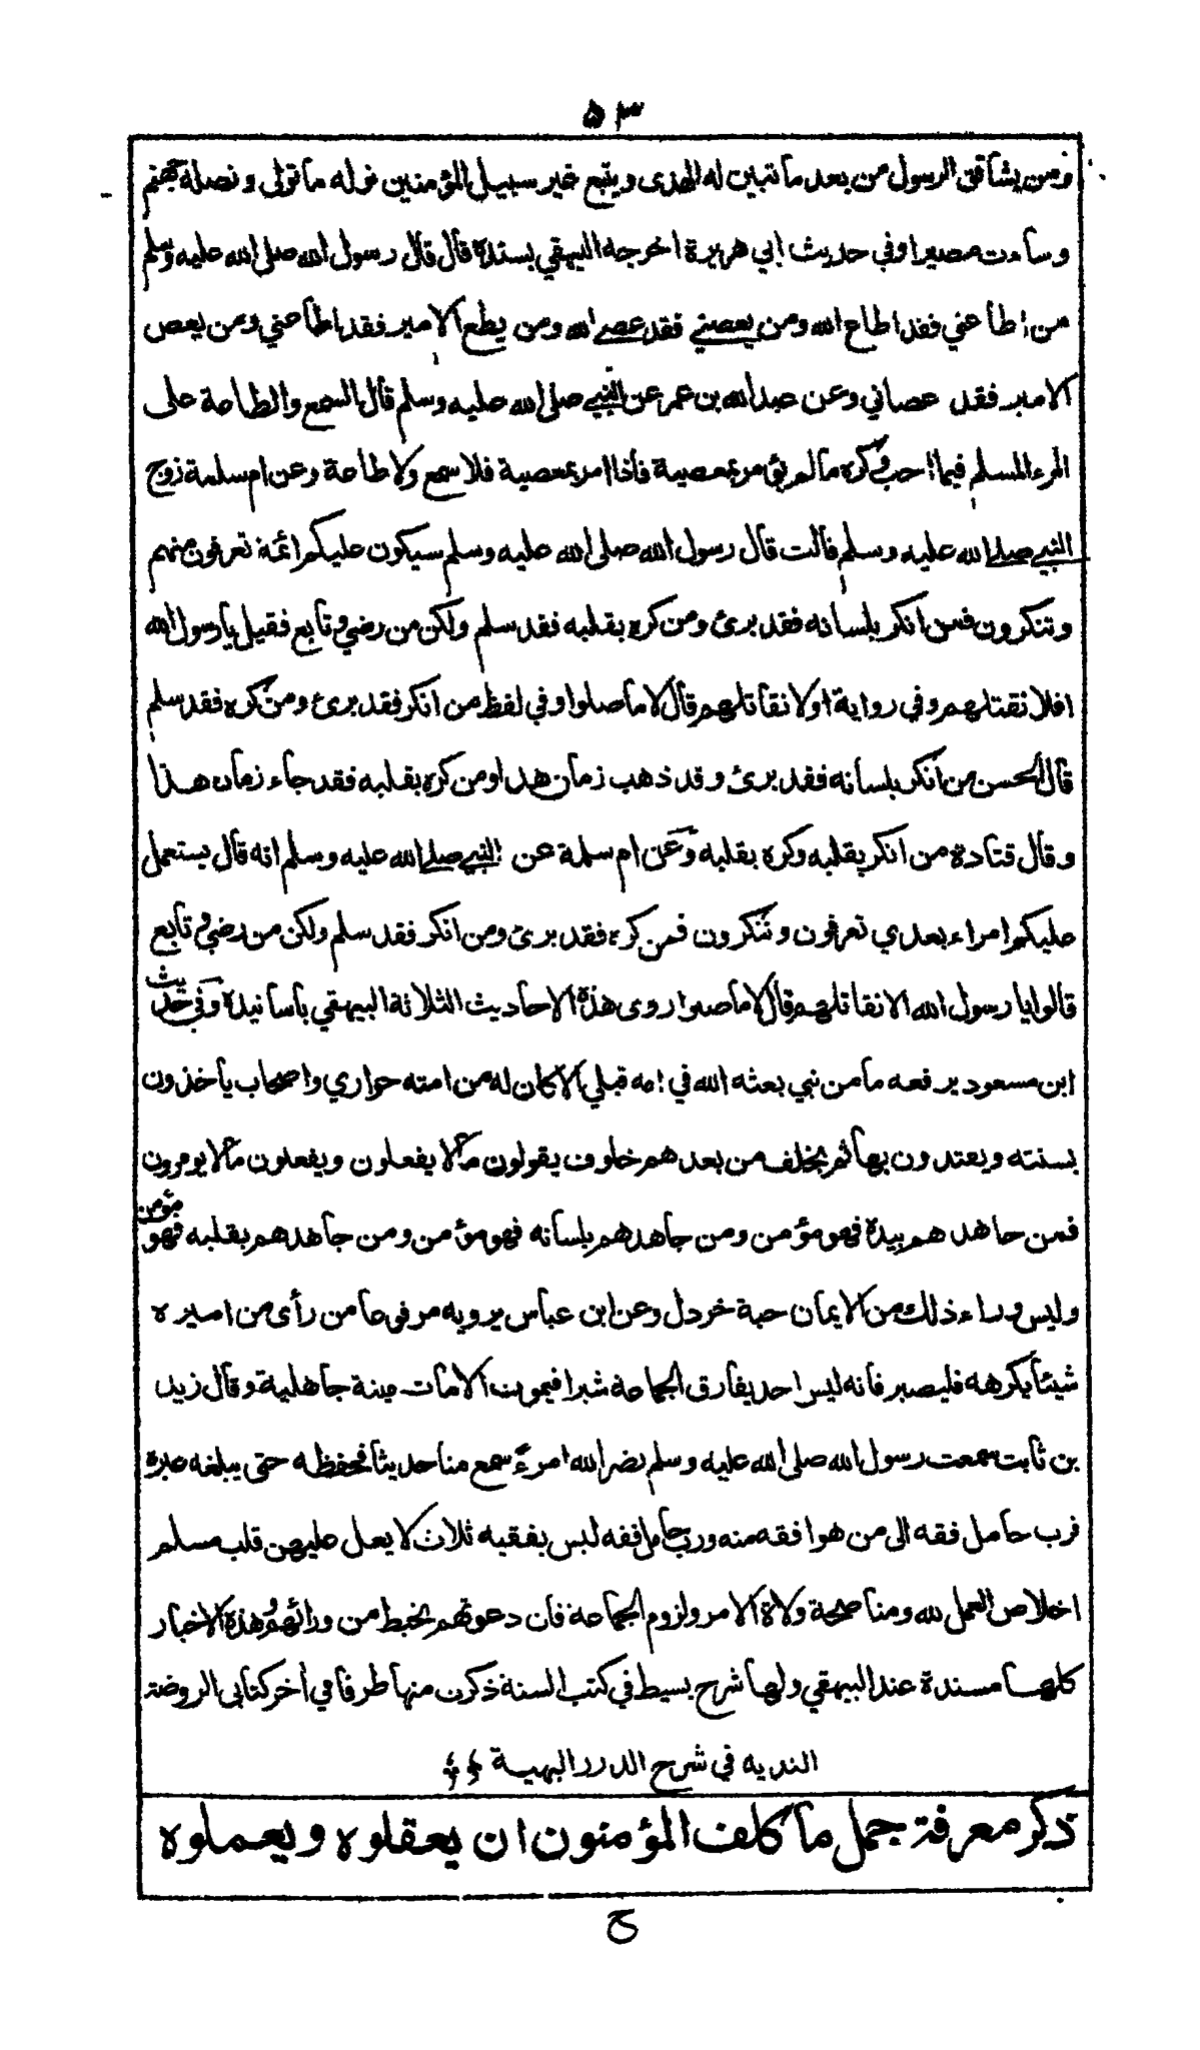 ٥٣
ومن يشاقق الرسول من بعد ما تبين له الهدى ويتبع غير سبيل المؤمنين نوله ما تولى ونصله جهنم
وساءت مصيرا وفي حديث ابي هريرة اخرجه البيهقي بسنده قال قال رسول الله صلى الله عليه وسلم
من اطاعني فقد اطاع الله ومن يعصني فقد عصى الله ومن يطع الامير فقد اطاعني ومن يعص
الامير فقد عصاني وعن عبدالله بن عمر عن النبي صلى الله عليه وسلم قال السمع والطاعة على
المرء المسلم فيما احب وكره ما لم يؤمر بمعصية فاذا امر بمعصية فلا سمع ولا طاعة وعن ام سلمة زوج
النبي صلى الله عليه وسلم قالت قال رسول الله صلى الله عليه وسلم سيكون عليكم ائمة تعرفون منهم
وتنكرون فمن انكر بلسانه فقد برئ ومن كره بقلبه فقد سلم ولكن من رضي وتابع فقيل يا رسول الله
افلا نقتلهم وفي رواية اولا نقاتلهم قال لا ما صلوا وفي لفظ من انكر فقد برئ ومن كره فقد سلم
قال الحسن من انكر بلسانه فقد برئ وقد ذهب زمان هذا ومن كره بقلبه فقد جاء زمان هذا
وقال قتادة من انكر بقلبه وكره بقلبه وعن ام سلمة عن النبي صلى الله عليه وسلم انه قال يستعمل
عليكم امراء بعدي تعرفون وتنكرون فمن كره فقد برئ ومن انكر فقد سلم ولكن من رضي وتابع
قالوا يا رسول الله الا نقاتلهم قال لا ما صلوا روى هذه الاحاديث الثلاثة البيهقي بأسانيده وفي حديث
ابن مسعود يرفعه ما من نبي بعثه الله في امه قبلي الا كان له من امته حواري واصحاب يأخذون
بسنته ويعتدون بها ثم يخلف من بعدهم خلوف يقولون مالا يفعلون ويفعلون مالا يومرون
فمن جاهدهم بيده فهو مؤمن ومن جاهدهم بلسانه فهو مؤمن ومن جاهدهم بقلبه فهو مؤمن
وليس وراء ذلك من الايمان حبة خردل وعن ابن عباس يرويه مرفوعا من رأى من اميره
شيئا يكرهه فليصبر فانه ليس احد يفارق الجماعة شبرا فيموت الا مات ميتة جاهلية وقال زيد
بن ثابت سمعت رسول الله صلى الله عليه وسلم نضر الله امرءً سمع منا حديثا فحفظه حتى يبلغه غيره
فرب حامل فقه الى من هو افقه منه ورب حامل فقه ليس بفقيه ثلاث لا يعل عليهن قلب مسلم
اخلاص العمل لله ومناصحة ولاة الامر ولزوم الجماعة فان دعوتهم تحيط من ورائهم وهذه الاخبار
كلها مسندة عند البيهقي ولها شرح بسيط في كتب السنة ذكرت منها طرفا في أخر كتابي الروضة
الندية في شرح الدرر البهية
ذكر معرفة جمل ما كلف المؤمنون ان يعقلوه ويعملوه
ح